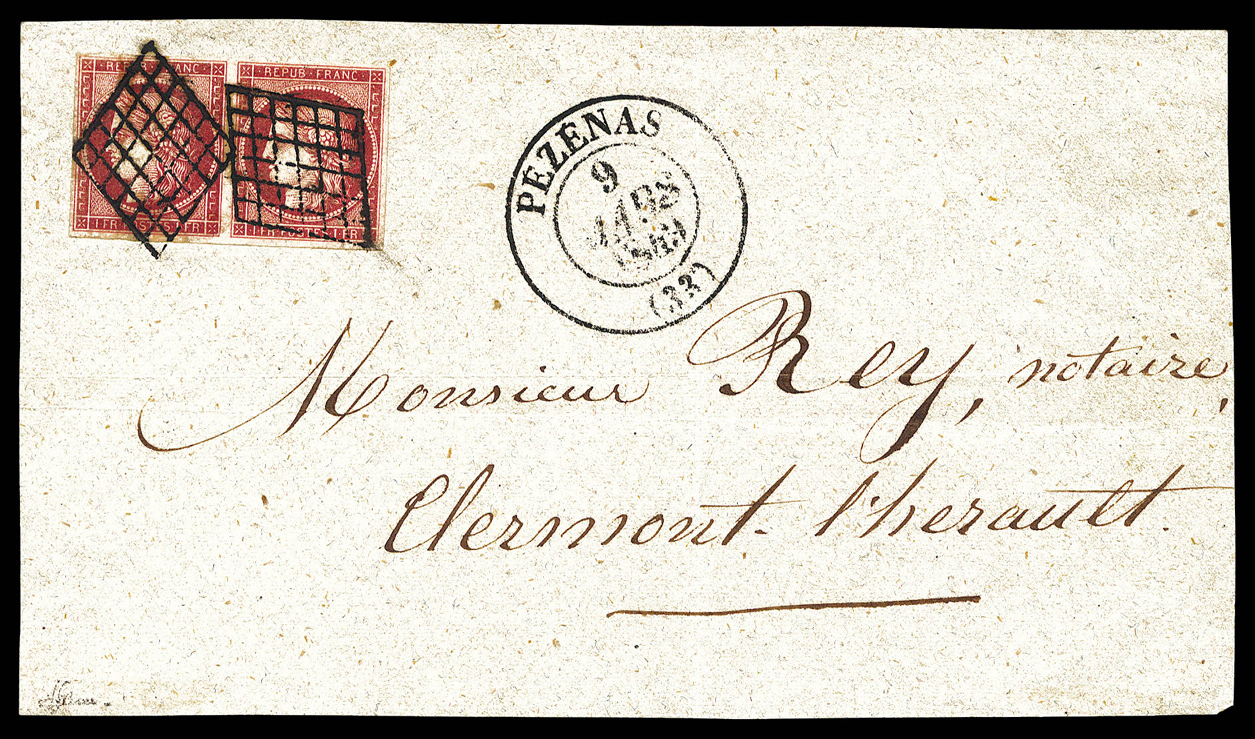 REPUB FRANC
REPUB FRANC
1 FR POSTES 1 FR
1 FR POSTES 1 FR
PEZÉNAS
9
MARS
(33)
Monsieur Rey, notaire,
Clermont-l'herault.